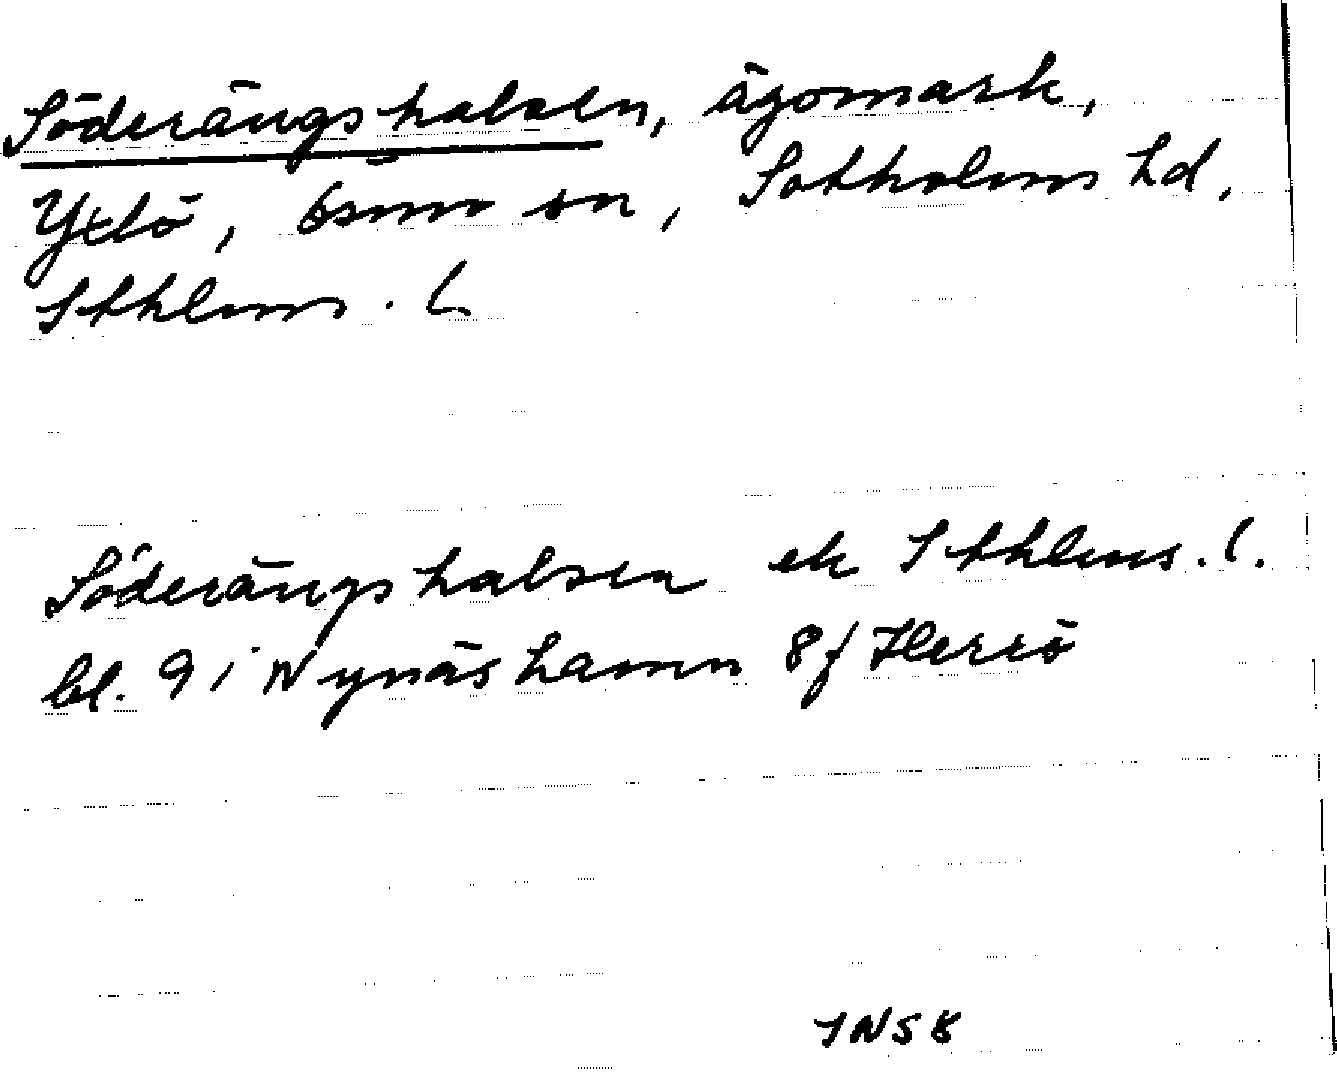 Söderängshalsen, ägomark,
Yxlö, Ösmo sn, Sotholms hd,
Sthlms. l.
Söderängshalsen ek Sthlms. l.
bl. 9 i Nynäshamn 8f Herrö